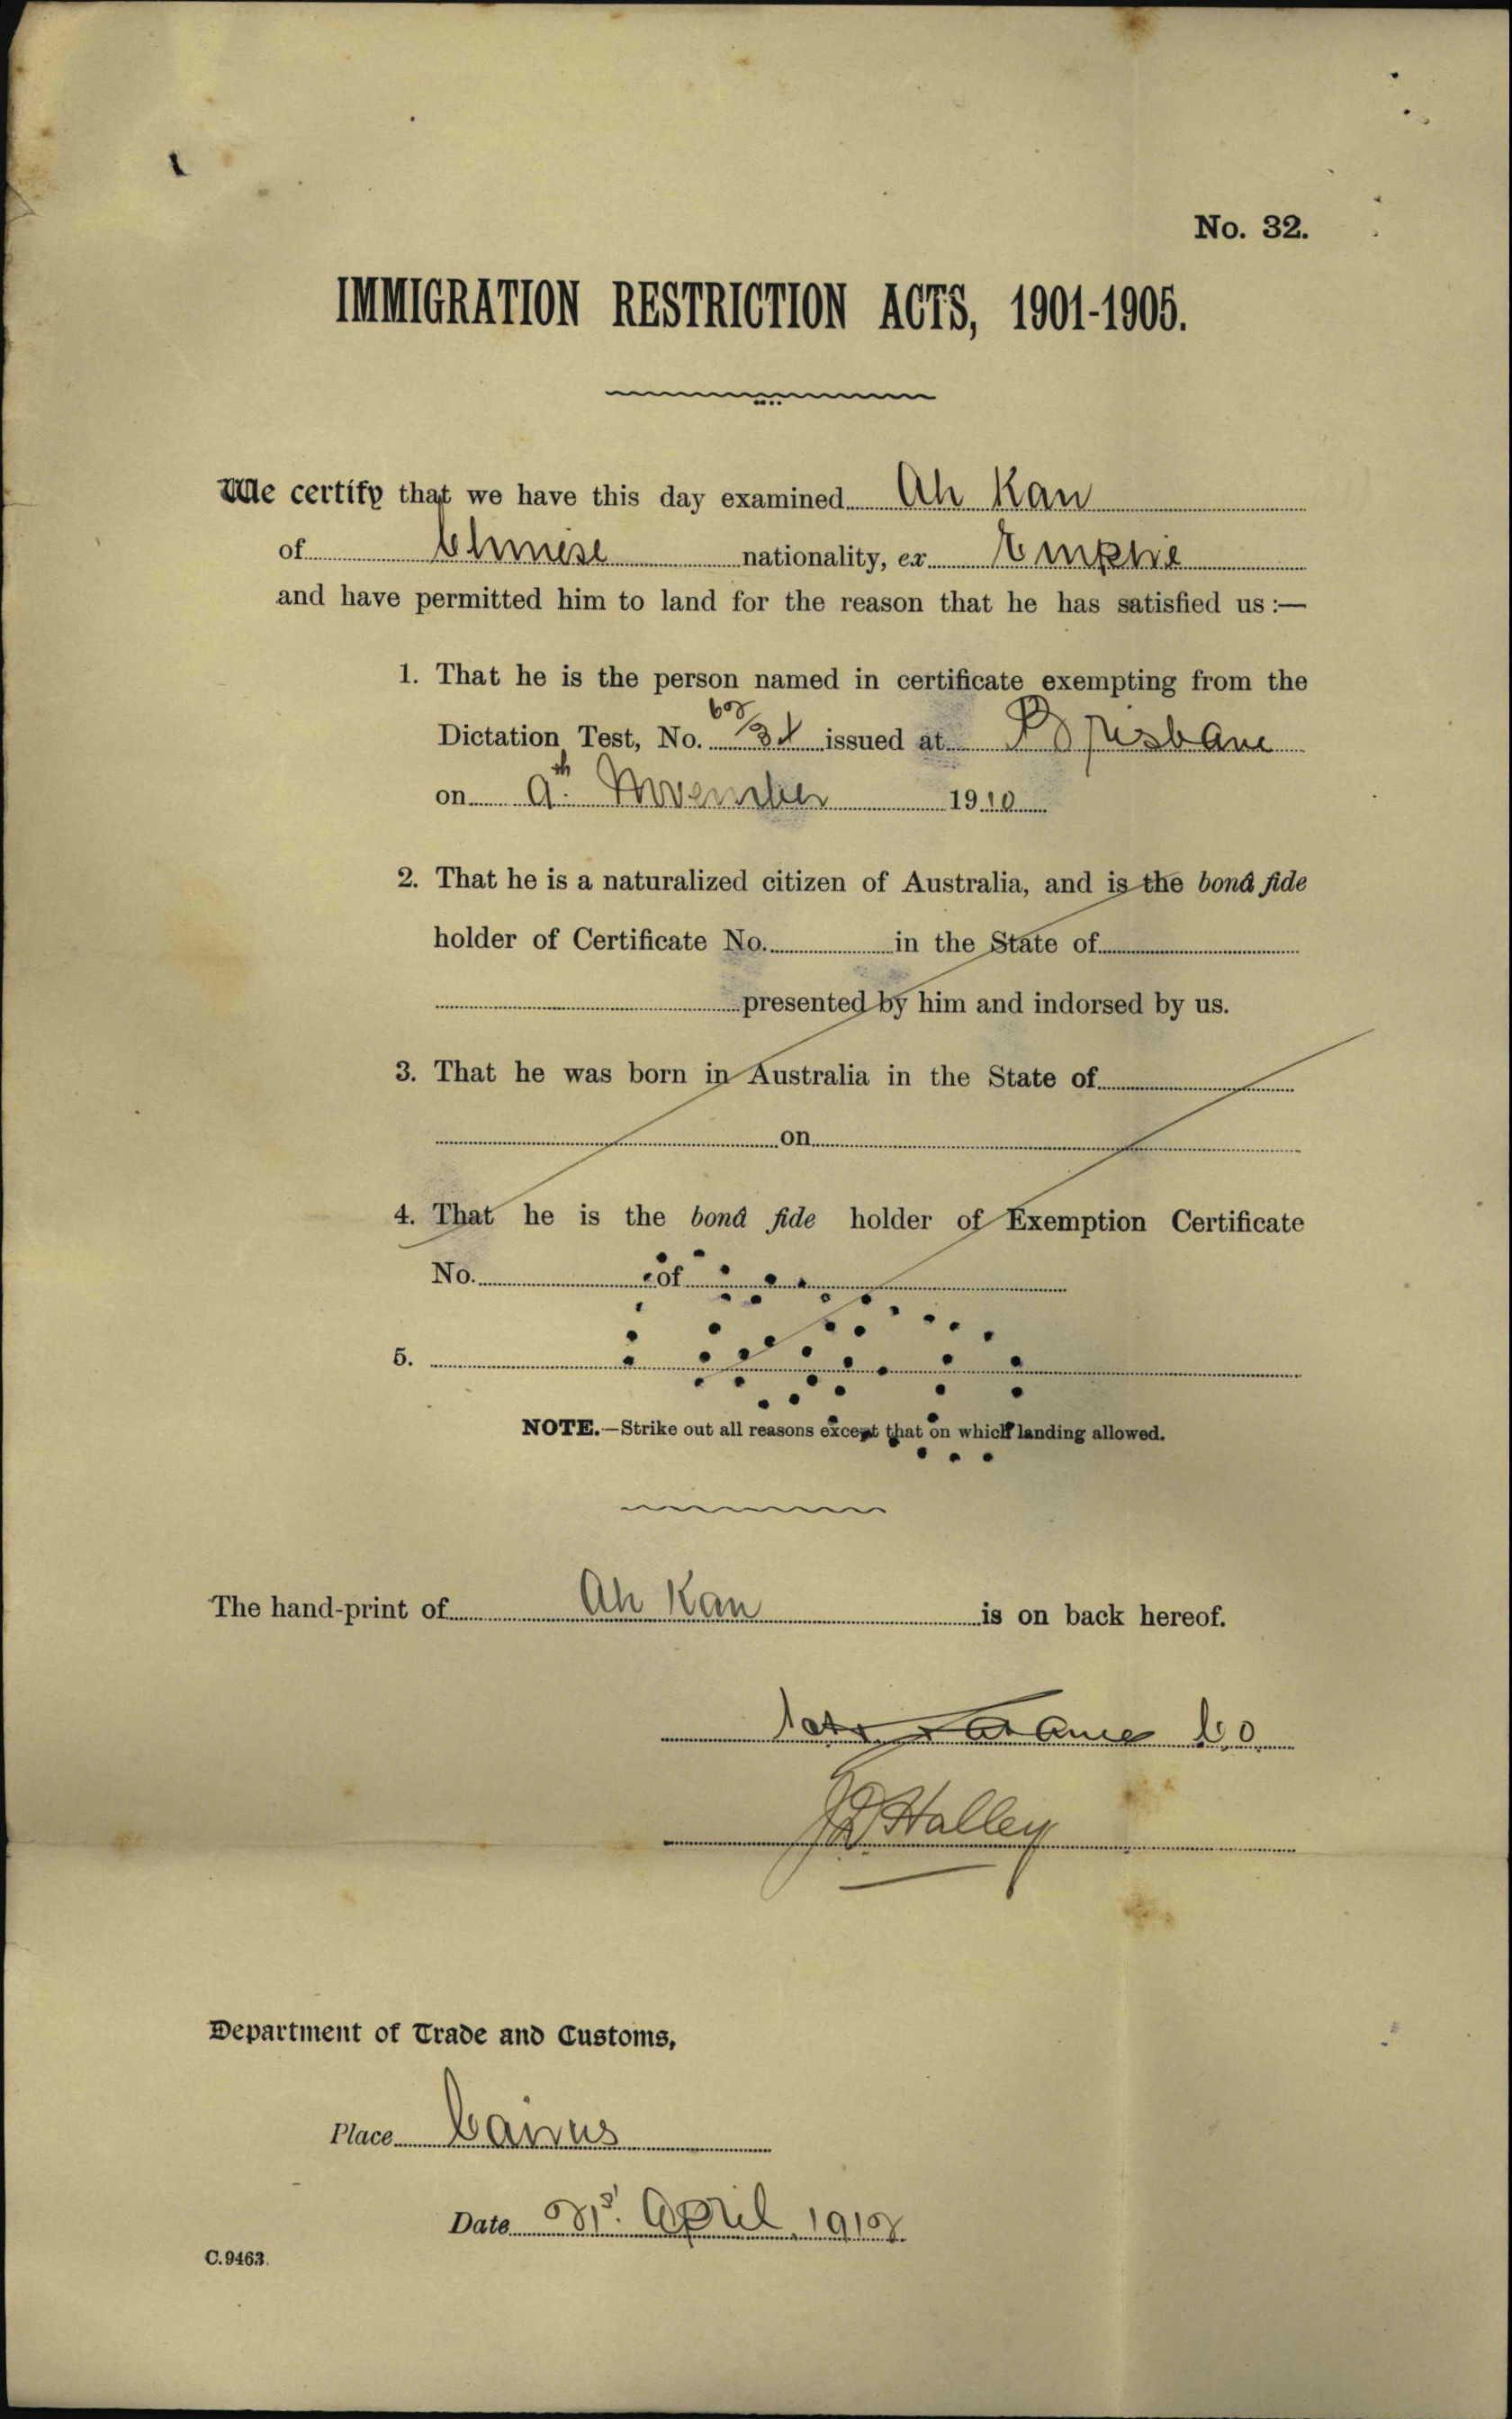 No. 32.
IMMIGRATION RESTRICTION ACTS, 1901-1905.
We certify that we have this day examined Ah Kan
of Chinese nationality, ex Empire
and have permitted him to land for the reason that he has satisfied us :—
1. That he is the person named in certificate exempting from the
Dictation Test, No. issued at Brisbane
on 9th November 1910
2. That he is a naturalized citizen of Australia, and is the bonâ fide
holder of Certificate No. in the State of
presented by him and indorsed by us.
3. That he was born in Australia in the State of
on
4. That he is the bonâ fide holder of Exemption Certificate
No. of
5.
NOTE.—Strike out all reasons except that on which landing allowed.
The hand-print of Ah Kan is on back hereof.
C.O
Halley
Department of Trade and Customs,
Place Cairns
Date 21st. April 1912
C.9463.